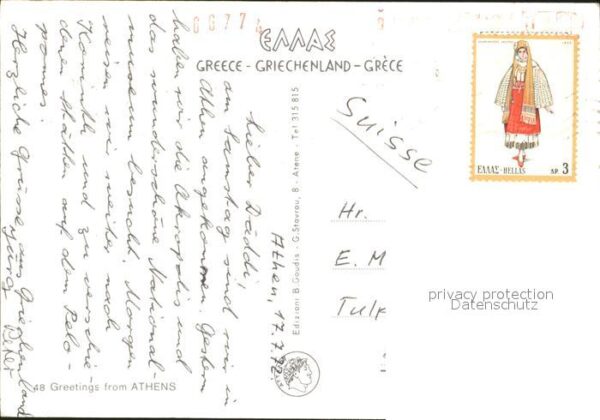 ΕΛΛΑΣ
GREECE - GRIECHENLAND - GRÈCE
Athen, 17.7.72
Lieber Däddi,
am Samstag sind wir in
Athen angekommen. Gestern
haben wir die Akropolis und
das wunderschöne National-
museum besucht. Morgen
reisen wir weiter nach
Korinth und zu verschie-
denen Stätten auf dem Pelo-
ponnes.
Herzliche Grüsse aus Griechenland
Jürg
Peter
48 Greetings from ATHENS
Edizioni B. Goudis - G. Stavrou, 8 - Atene - Tel 315 815
Suisse
Hr.
E. M
Tulp
ΕΛΛΑΣ-HELLAS ΔΡ. 3
privacy protection
Datenschutz